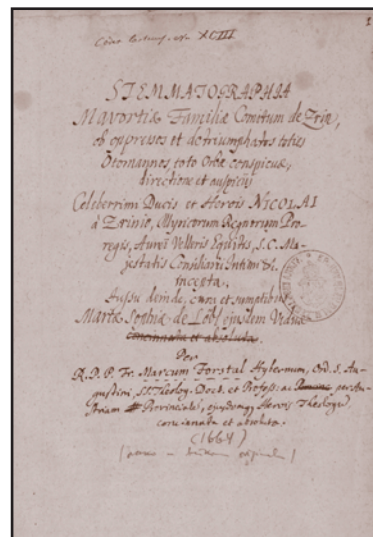 1
XCIII
STEMMATOGRAPHIA
Mavortiæ Familiæ Comitum de Zrin,
ob oppressos et de triumphatos toties
Otomannos, toto Orbe conspicuæ,
directione et auspicijs
Celeberrimi Ducis et Herois NICOLAI
à Zrinio, Illyricorum Regnorum Pro-
regis, Aurei Velleris Equitis, S. C. Ma-
jestatis Consiliarii Intimi &c.
incepta,
Jussu deinde, cura et sumptibus
Mariæ Sophiæ de Löbl ejusdem Viduæ
concinnata et absoluta.
Per
R. P. P. Fr. Marcum Forstal Hybernum, Ord. S. Au-
gustini, SS. Theolog. Doct. et Profess. ac per Au-
striam Provincialem, ejusdemq Herois Theologum
concinnata et absoluta.
(1664)